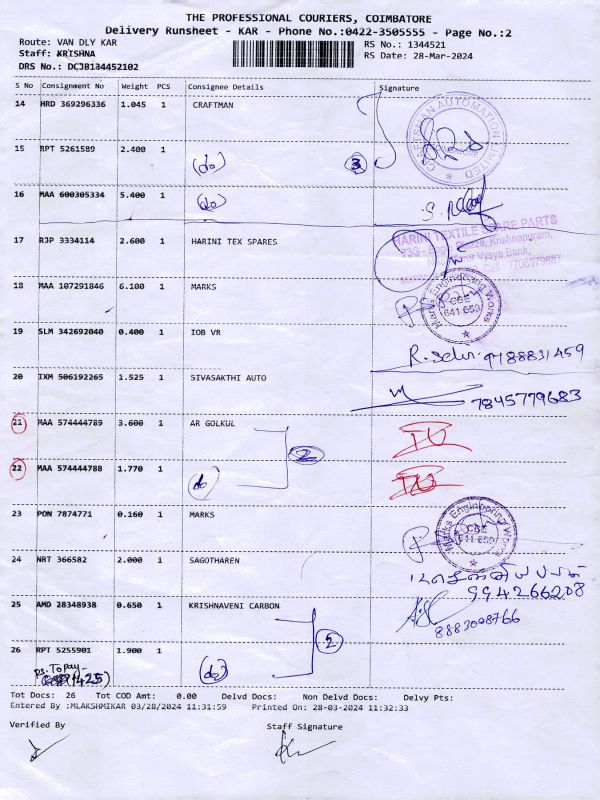 THE PROFESSIONAL COURIERS, COIMBATORE
Delivery Runsheet - KAR - Phone No.:0422-3505555 - Page No.:2
Route: VAN DLY KAR RS No.: 1344521
Staff: KRISHNA RS Date: 28-Mar-2024
DRS No.: DCJB134452102
S No Consignment No Weight PCS Consignee Details Signature
14 HRD 369296336 1.045 1 CRAFTMAN
15 RPT 5261589 2.400 1 (do) 3
16 MAA 600305334 5.400 1 (do)
HARINI TEXTILE SPARE PARTS
17 RJP 3334114 2.600 1 HARINI TEX SPARES
18 MAA 107291846 6.100 1 MARKS
Marks Engineering Works
CBE
641 659
19 SLM 342692040 0.400 1 IOB VR
20 IXM 506192265 1.525 1 SIVASAKTHI AUTO
7845779683
21 MAA 574444789 3.600 1 AR GOLKUL
2
22 MAA 574444788 1.770 1
23 PON 7874771 0.160 1 MARKS
Marks Engineering Works
24 NRT 366582 2.000 1 SAGOTHAREN
994266208
25 AMD 28348938 0.650 1 KRISHNAVENI CARBON
8883098766
2
26 RPT 5255901 1.900 1 (do)
Tot Docs: 26 Tot COD Amt: 0.00 Delvd Docs: Non Delvd Docs: Delvy Pts:
Entered By :MLAKSHMIKAR 03/28/2024 11:31:59 Printed On: 28-03-2024 11:32:33
Verified By Staff Signature